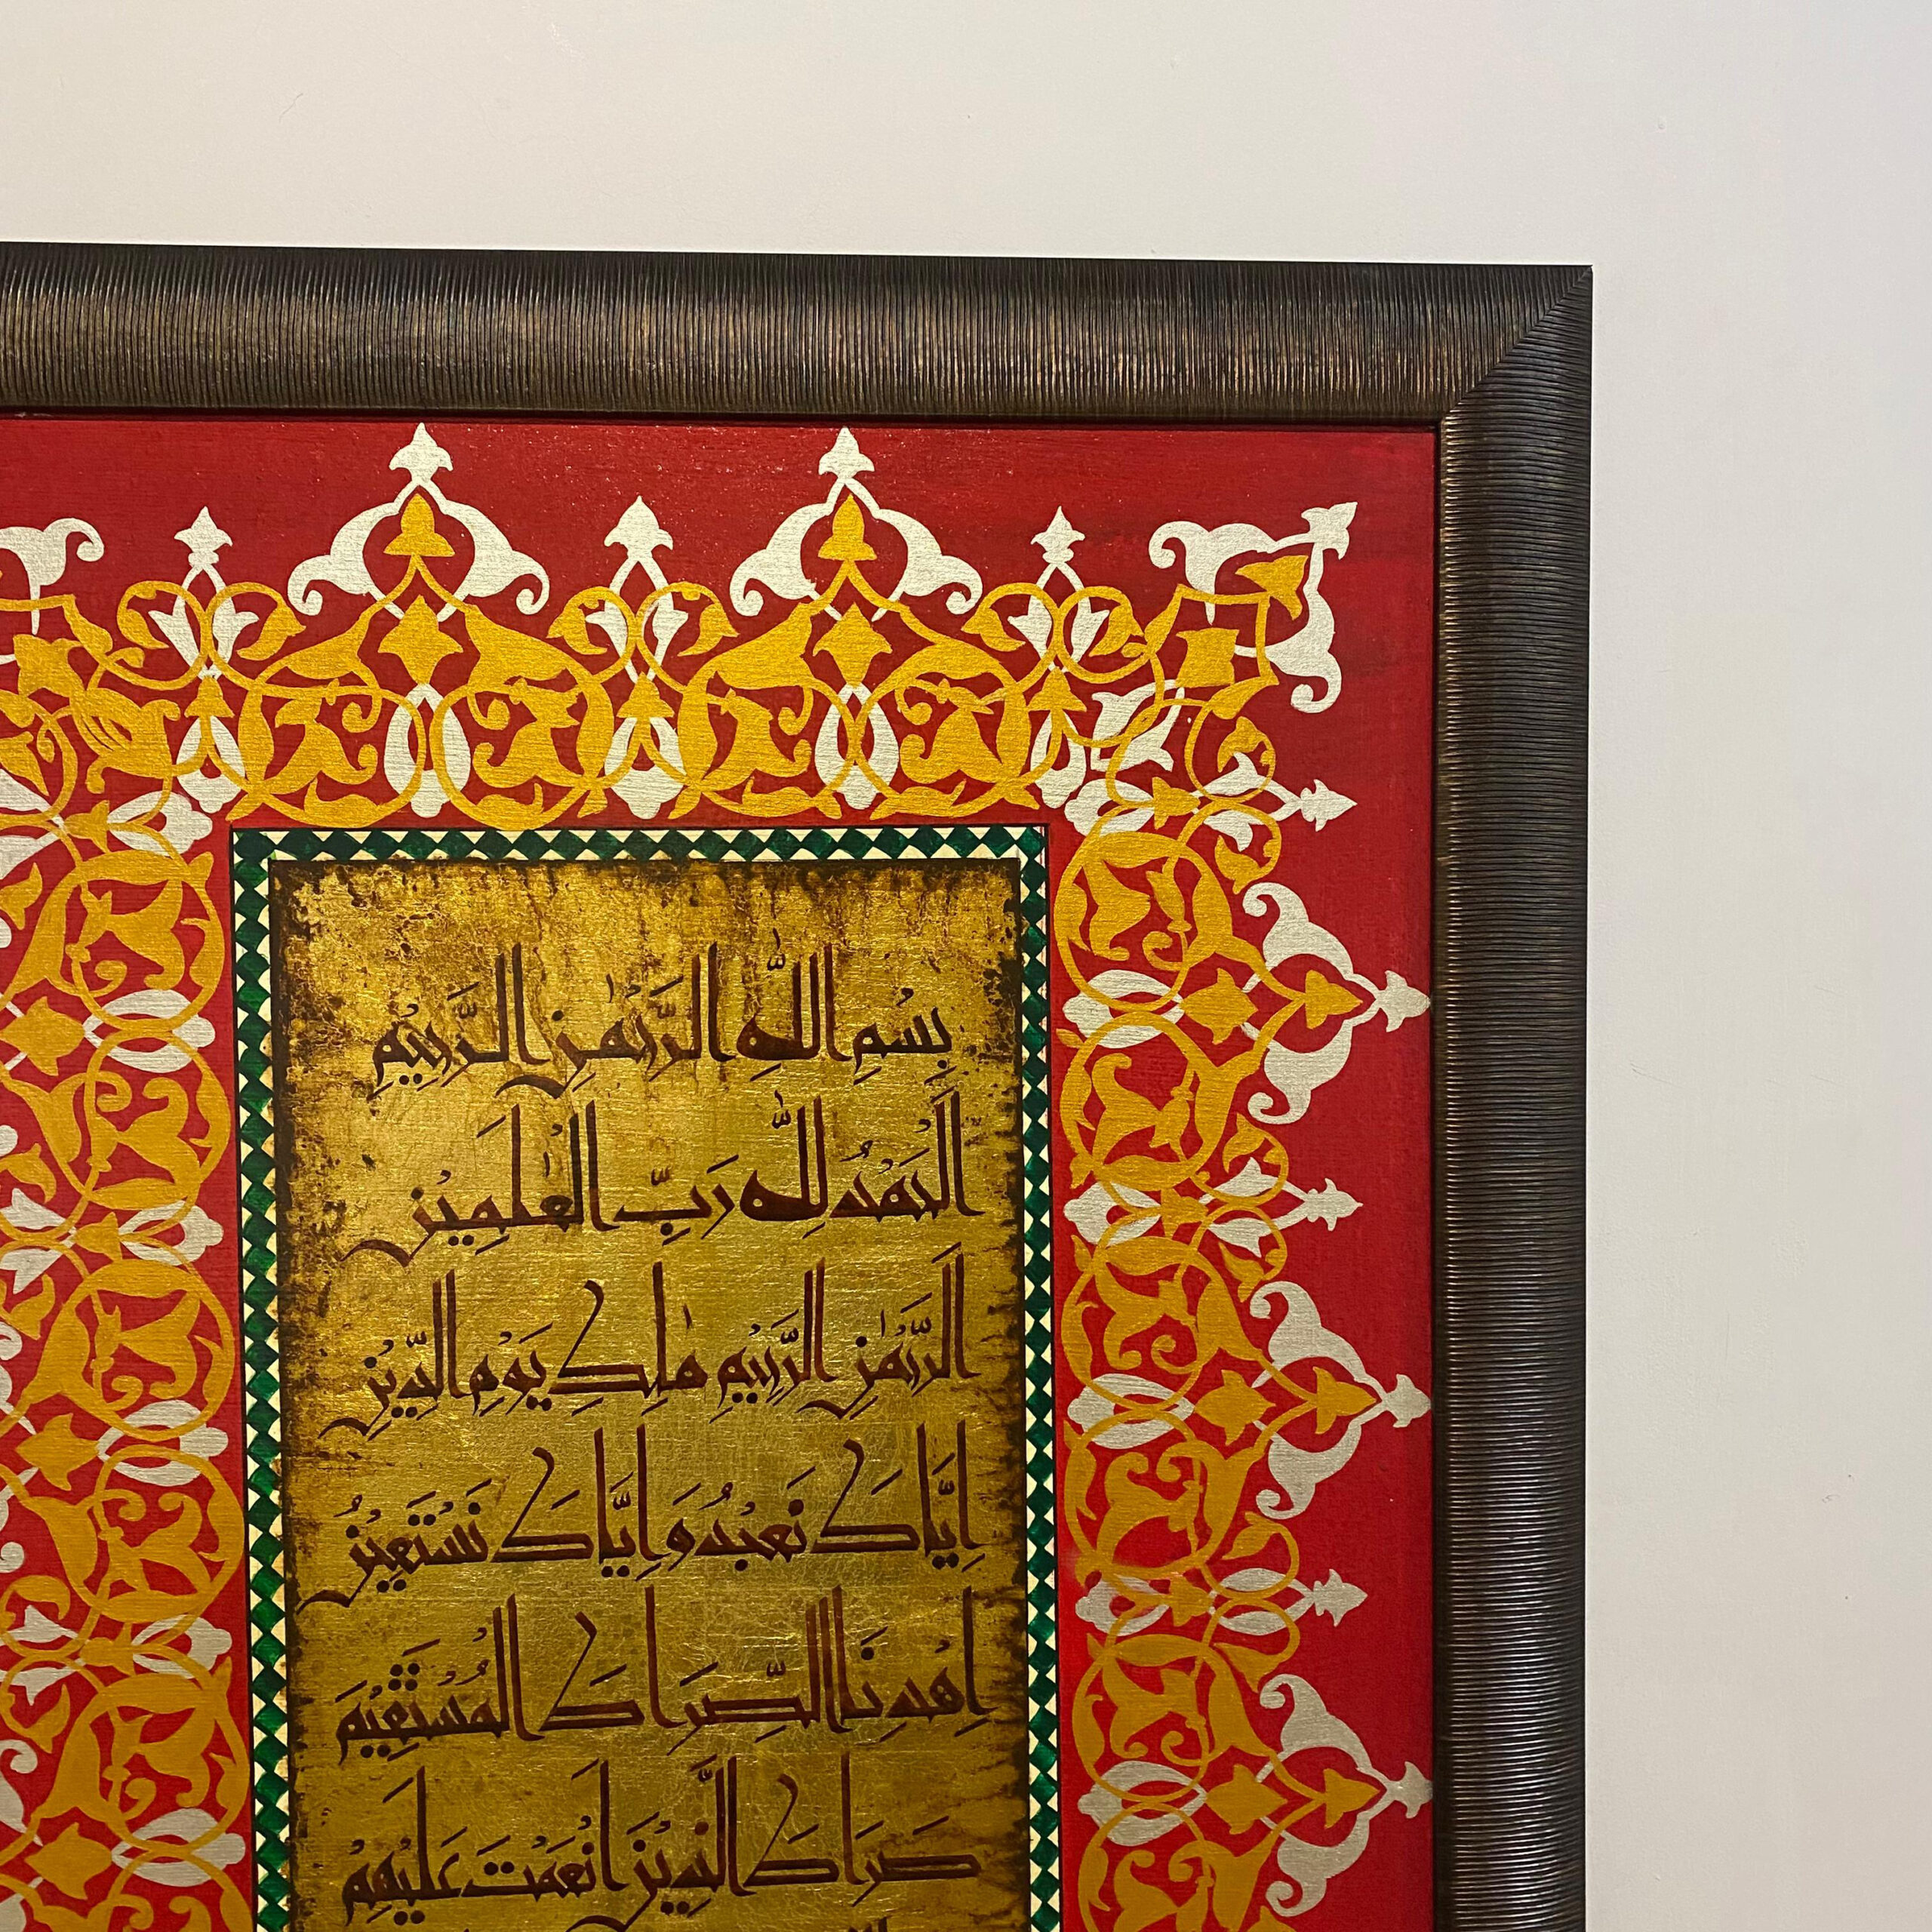 بِسْمِ اللّٰهِ الرَّحْمٰنِ الرَّحِيْمِ
اَلْحَمْدُ لِلّٰهِ رَبِّ الْعٰلَمِيْنَ
اَلرَّحْمٰنِ الرَّحِيْمِ مٰلِكِ يَوْمِ الدِّيْنِ
اِيَّاكَ نَعْبُدُ وَاِيَّاكَ نَسْتَعِيْنُ
اِهْدِنَا الصِّرَاطَ الْمُسْتَقِيْمَ
صِرَاطَ الَّذِيْنَ اَنْعَمْتَ عَلَيْهِمْ